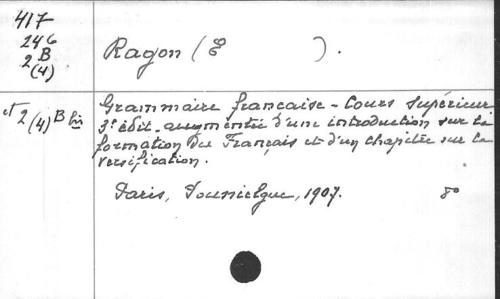 417
246
2 B
(4)
Ragon (E ).
et 2(4) B bis
Grammaire francaise - Cours supérieur
3e édit. augmentée d'une introduction sur la
formation du Français et d'un chapitre sur la
versification.
Paris, 1907. 8o